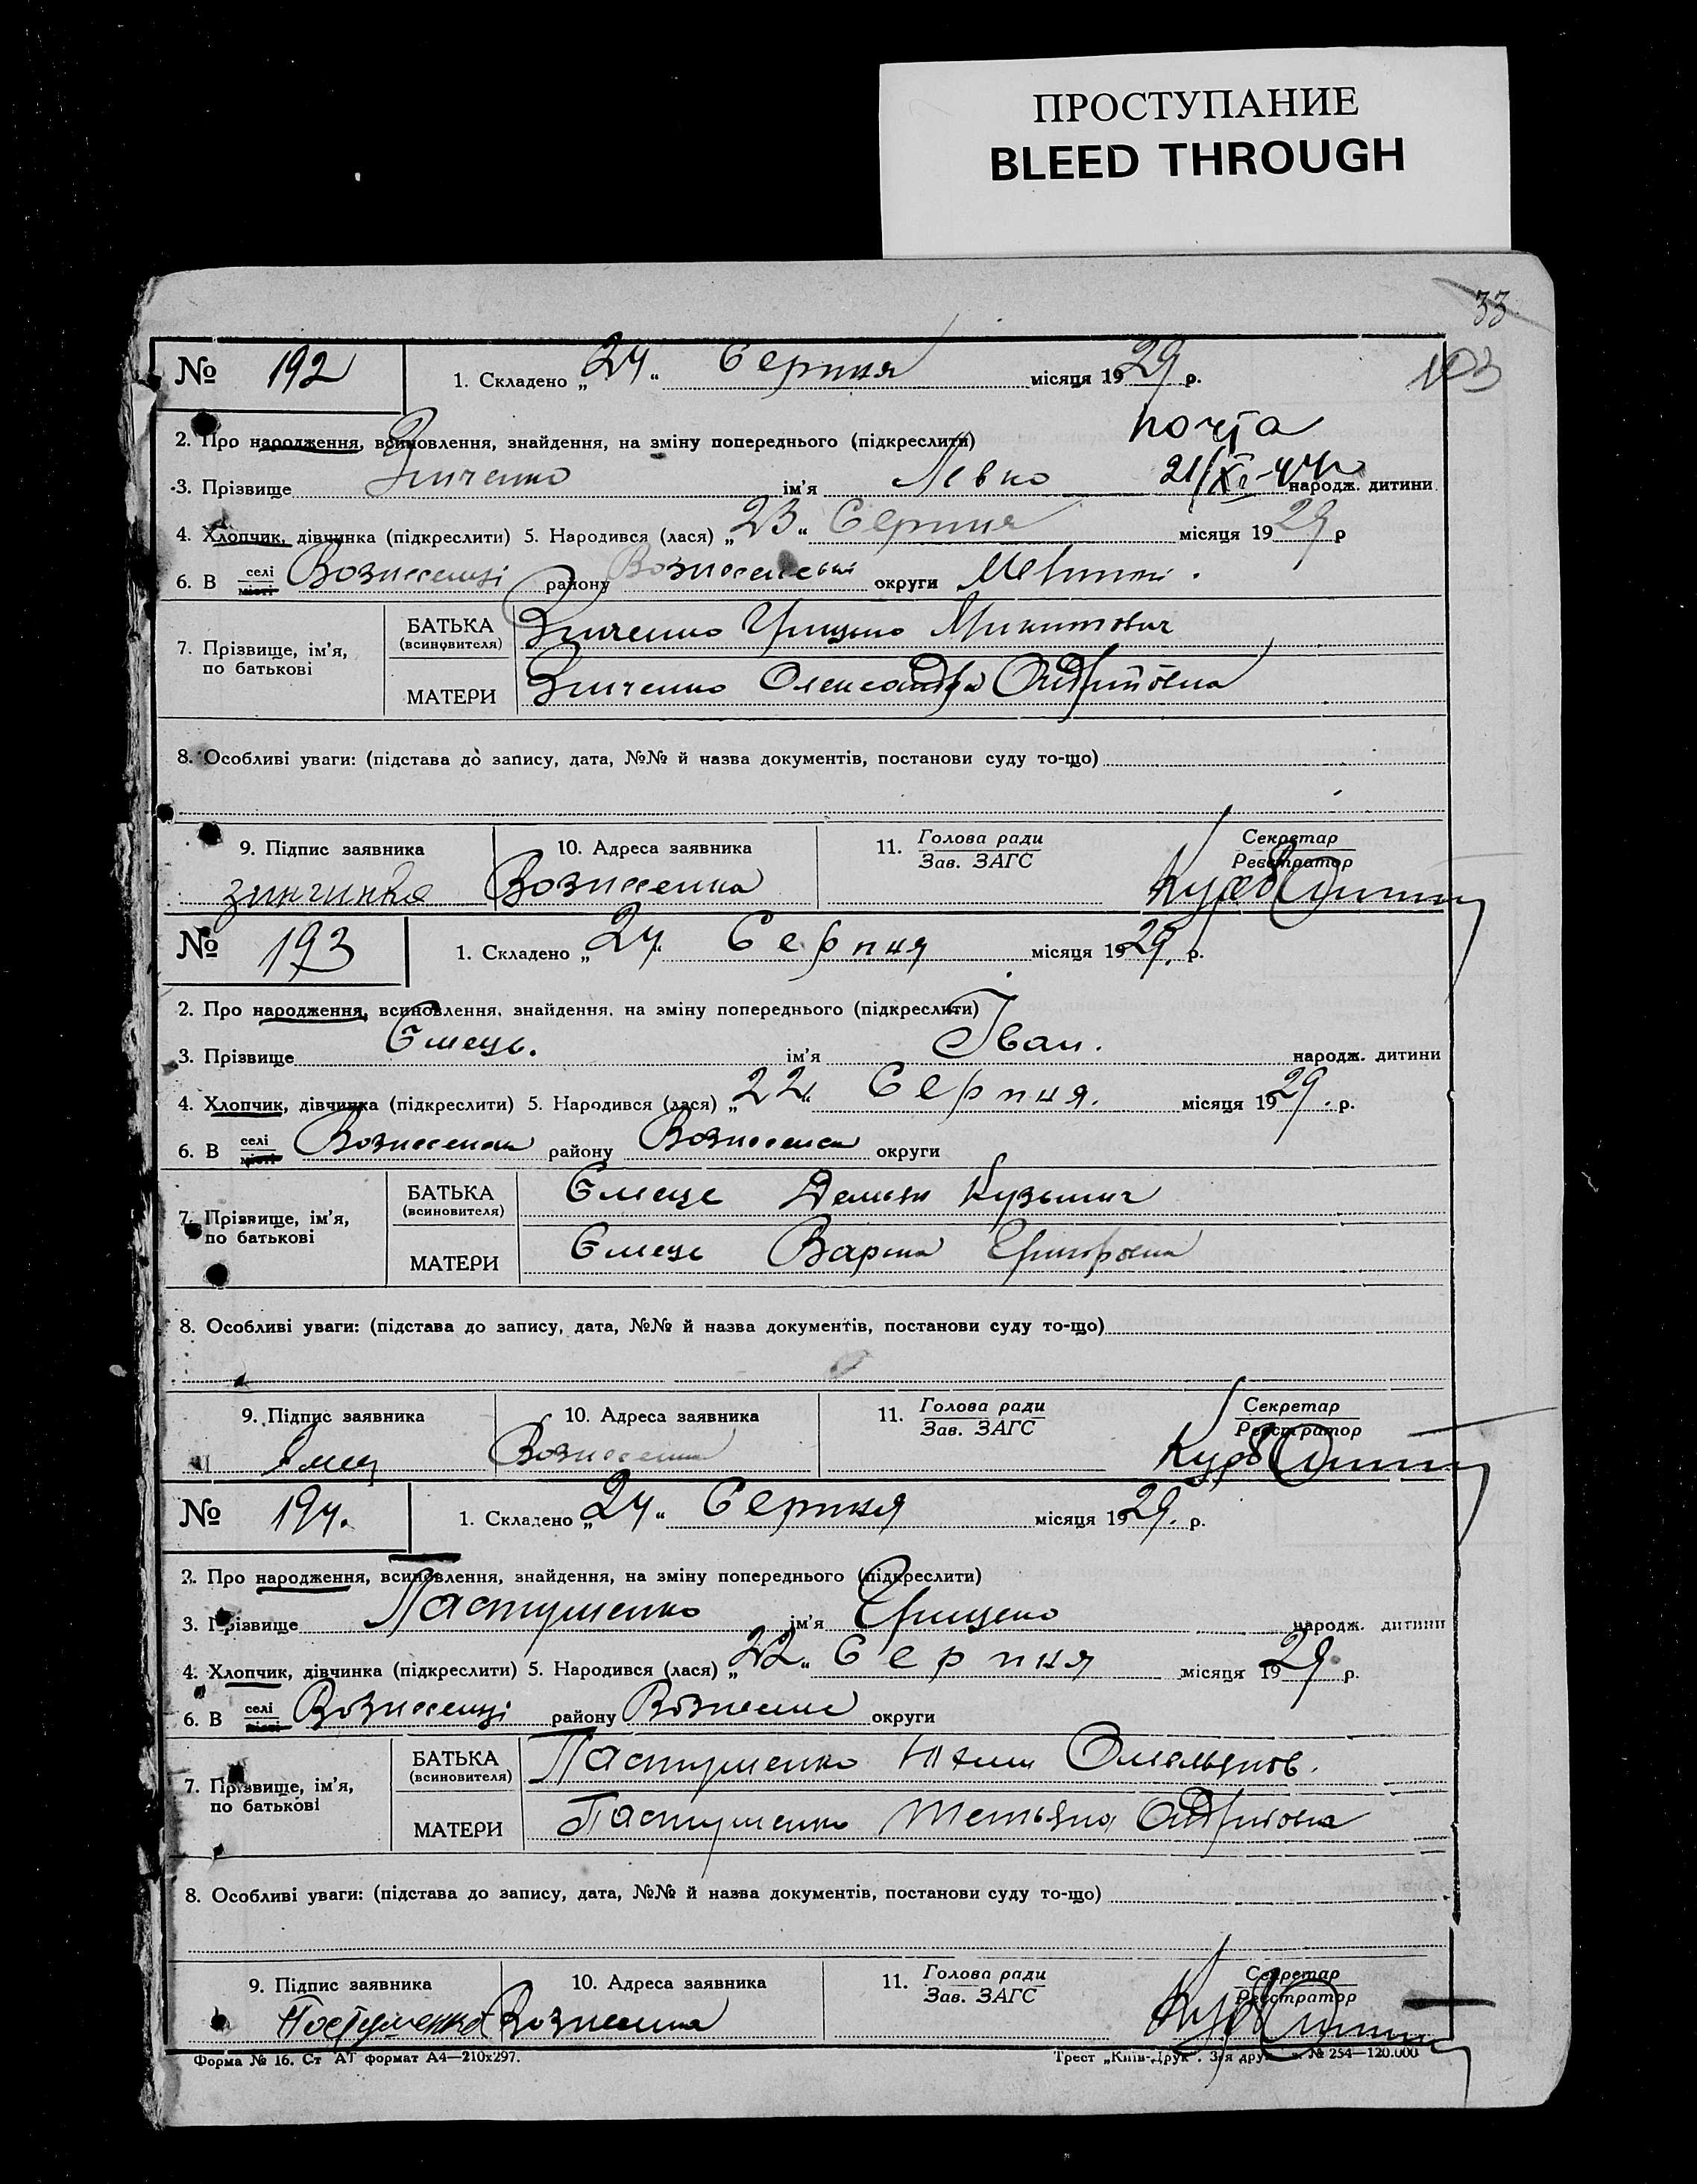 ПРОСТУПАНИЕ
BLEED THROUGH
33
103
№ 192 1. Складено „24“ Серпня місяця 1929 р.
2. Про народження, всиновлення, знайдення, на зміну попереднього (підкреслити) почта
3. Прізвище Зинченко ім'я Левко 21/XI-44 народж. дитини
4. Хлопчик, дівчинка (підкреслити) 5. Народився (лася) „23“ Серпня місяця 1929 р
6. В селі місті Вознесенці району округи
7. Прізвище, ім'я, по батькові БАТЬКА (всиновителя) Зинченко Грицько Микитович
МАТЕРИ Зинченко Олександра Андріївна
8. Особливі уваги: (підстава до запису, дата, №№ й назва документів, постанови суду то-що)
9. Підпис заявника 10. Адреса заявника 11. Голова ради Зав. ЗАГС Секретар Реєстратор
Вознесенка
№ 193 1. Складено „24“ Серпня місяця 1929. р.
2. Про народження, всиновлення, знайдення, на зміну попереднього (підкреслити)
3. Прізвище Ємець. ім'я Іван. народж. дитини
4. Хлопчик, дівчинка (підкреслити) 5. Народився (лася) „22“ Серпня. місяця 1929. р.
6. В селі місті району округи
7. Прізвище, ім'я, по батькові БАТЬКА (всиновителя) Ємець Демьян Кузьмич
МАТЕРИ Ємець Варка Григоровна
8. Особливі уваги: (підстава до запису, дата, №№ й назва документів, постанови суду то-що)
9. Підпис заявника 10. Адреса заявника 11. Голова ради Зав. ЗАГС Секретар Реєстратор
Ємец Вознесенка
№ 194. 1. Складено „24“ Серпня місяця 1929. р.
2. Про народження, всиновлення, знайдення, на зміну попереднього (підкреслити)
3. Прізвище Пастушенко ім'я Грицько народж. дитини
4. Хлопчик, дівчинка (підкреслити) 5. Народився (лася) „22“ Серпня місяця 1929 р.
6. В селі місті Вознесенці району округи
7. Прізвище, ім'я, по батькові БАТЬКА (всиновителя) Пастушенко
МАТЕРИ Пастушенко Тетьяна Андріївна
8. Особливі уваги: (підстава до запису, дата, №№ й назва документів, постанови суду то-що)
9. Підпис заявника 10. Адреса заявника 11. Голова ради Зав. ЗАГС Секретар Реєстратор
Вознесенка
Форма № 16. Ст АТ формат А4—210х297. Трест „Київ-Друк“. № 254—120.000